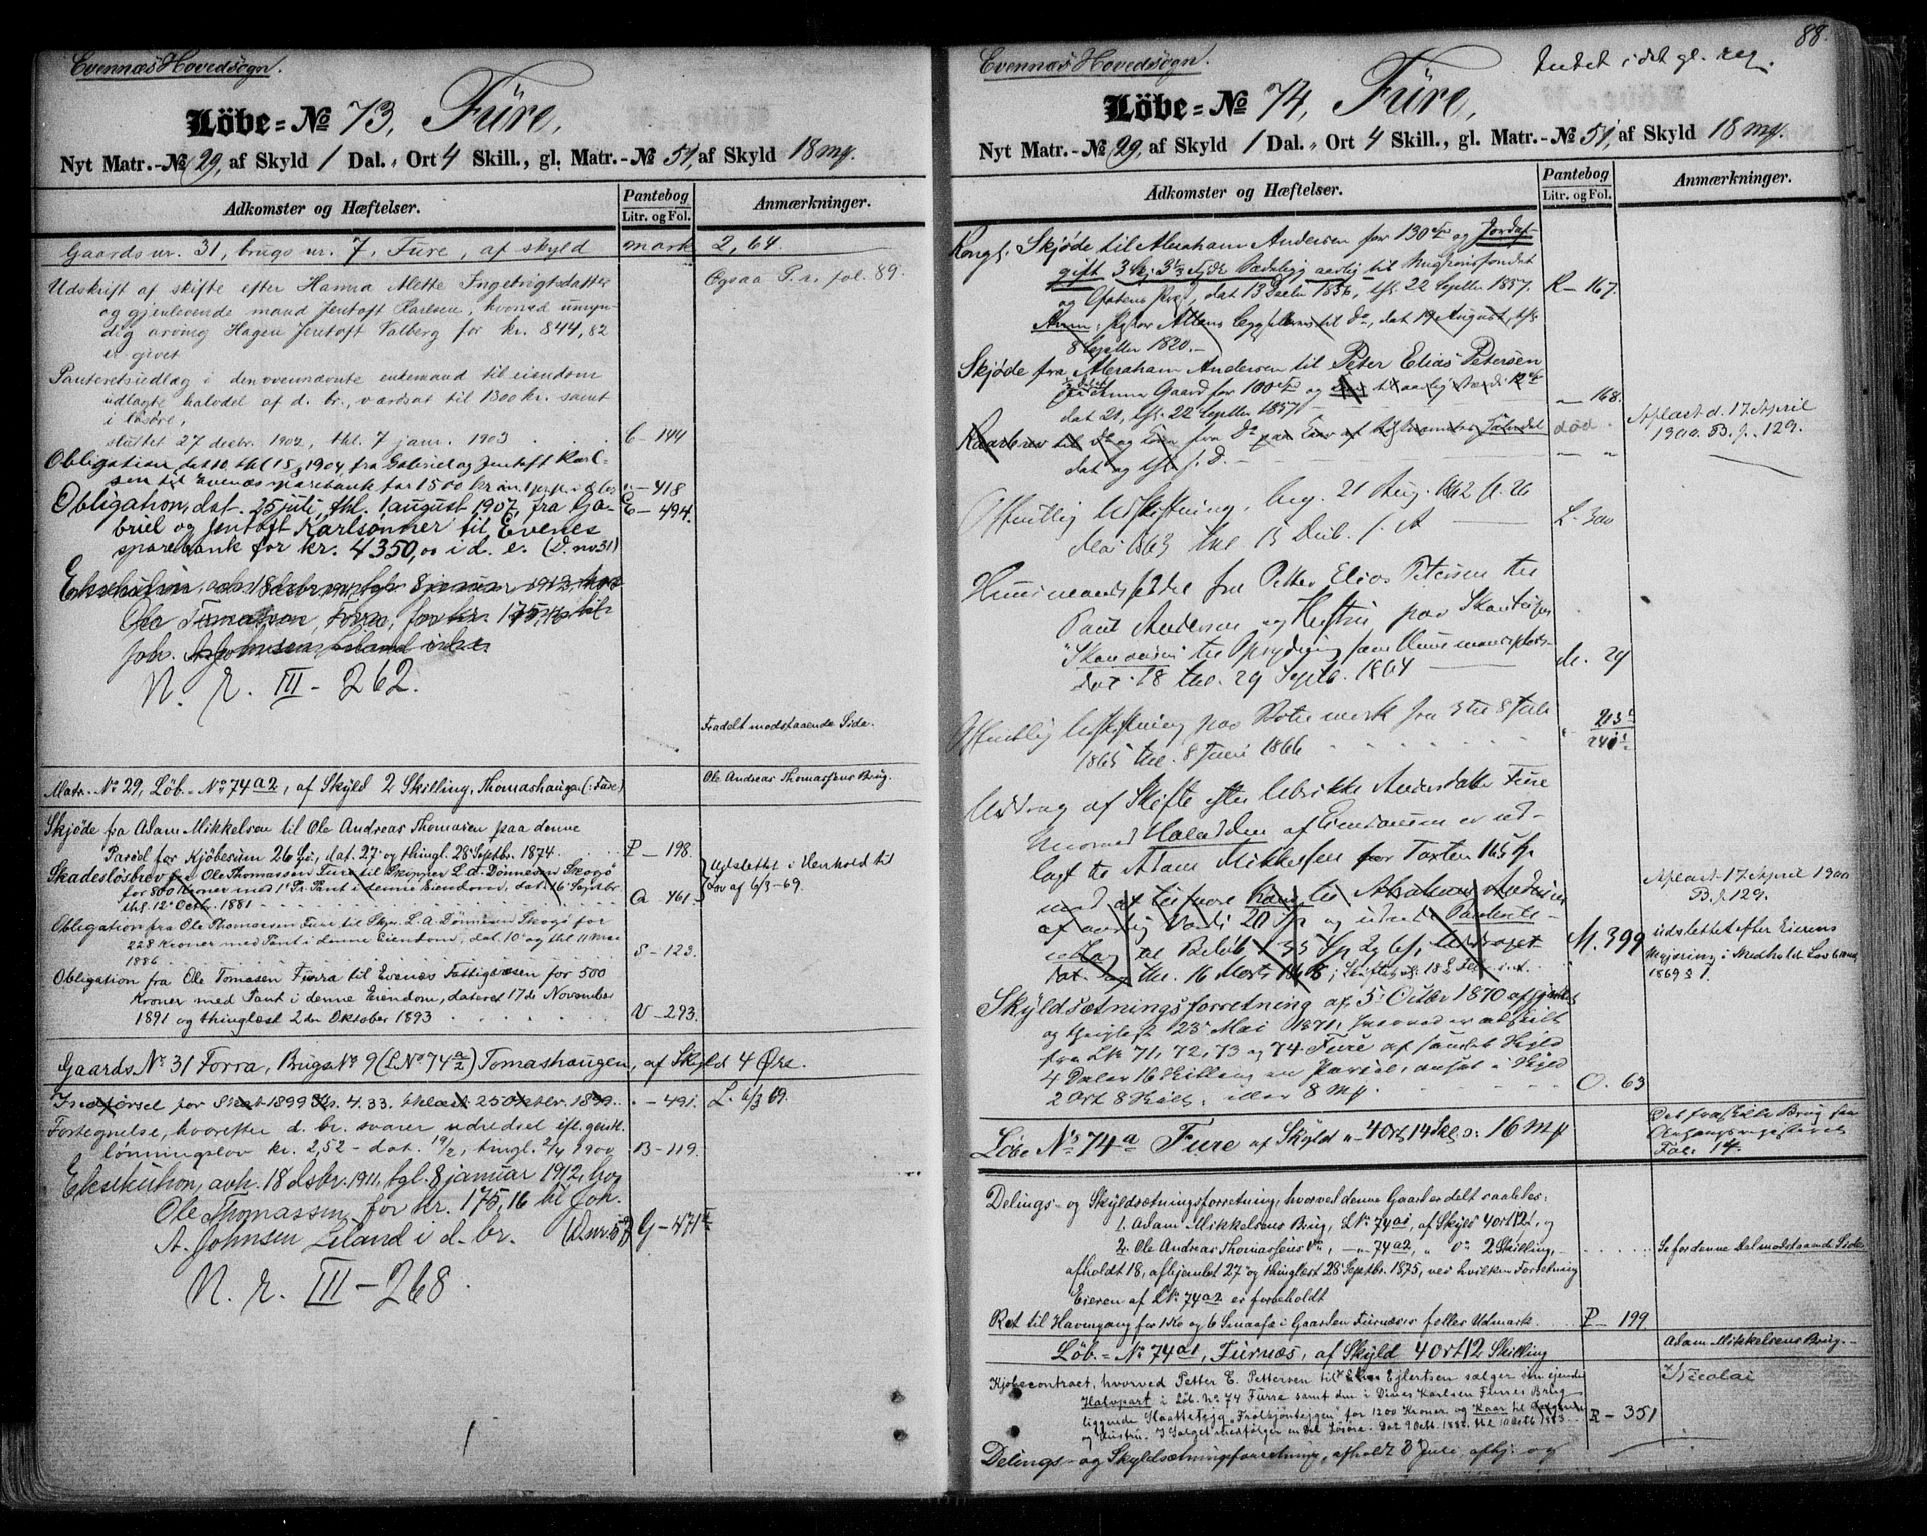 Evennæs Hovedsogn.
Löbe=No 73, Füre,
Nyt Matr.-No 29, af Skyld 1 Dal. „ Ort 4 Skill., gl. Matr.-No 51, af Skyld 18 mg.
Adkomster og Hæftelser.
Pantebog
Litr. og Fol.
Anmærkninger.
Gaards nr. 31, brugs nr. 7, Fure, af skyld mark 2,64
Udskrift af skifte efter Hanna Alette Ingebrigtsdatter
og gjenlevende mand Jentoft Karlsen, hvorved umyn-
dig arving Hagen Jentoft Valberg for kr. 844,82
er givet
Ogsaa P. a. fol. 89.
Panteretsudlæg i den ovennævnte enkemand til eiendom
udlagte halvdel af d. br., værdsat til 1300 kr. samt
i løsøre,
sluttet 27 decbr. 1902, thl. 7 janr. 1903 C - 144
Obligation, dat. 10, thl. 15 1904, fra Gabriel og Jentoft Karl-
sen til Evenæs sparebank for 1500 kr. „ - 418
Obligation, dat. 25 juli, thl. 1 august 1907, fra Ga- E - 494.
briel og Jentoft Karlsønner til Evenes
sparebank for kr. 4350,00 i d. e. (D. nr 31)
Eksekution, avh. 18 decbr. 1911, tgl. 8 januar 1912, hos
Ole Tomassen, Forra, for kr. 175,16 til
Joh. A. Johnsen Liland
N. r. III - 262.
Fradelt modstaaende Side.
Matr. No 29, Löb. No 74 a2, af Skyld 2 Skilling, Thomashaugen (: Fure)
Ole Andreas Thomassens Brug.
Skjøde fra Adam Mikkelsen til Ole Andreas Thomasen paa denne
Parcel for Kjøbesum 26 Sp, dat. 27 og thingl. 28 Septbr. 1874. P - 198.
Skadesløsbrev fra Ole Thomassen Fure til Skipper L. A. Dønnesen Skogø
for 800 Kroner med 1ste Pr. Pant i denne Eiendom, dat. 16 Septbr.
thl. 12 Octb. 1881 Q - 461
Udslettet i Henhold til
Lov af 6/3-69.
Obligation fra Ole Thomassen Fure til Skpr. L. A. Dønnesen Skogø for
228 Kroner med Pant i denne Eiendom, dat. 10 og thl. 11 Mai
1886 S - 123.
Obligation fra Ole Tomasen Furra til Evenæs Fattigvæsen for 500
Kroner med Pant i denne Eiendom, dateret 17de November
1891 og thinglæst 2den Oktober 1893 V - 293.
Gaards No 31 Forra, Brugs No 9 (L No 74 a/2) Tomashaugen, af Skyld 4 Øre.
Indførsel for Skat 1899 Kr. 4.33. thlæst 25 Oktbr. 1899. „ - 491. L. 6/3 69.
Fortegnelse, hvorefter d. br. svarer udredsel eft. geistl.
lønningslov kr. 2,52 - dat. 19/2, tingl. 2/4 1900 B - 119.
Eksekution, avh. 18 dsbr. 1911, tgl. 8 januar 1912, hos
Ole Thomassen for kr. 175,16 til Joh.
A. Johnsen Liland i d. br. (D. nr. 57) G - 471
N. r. III - 268.
88.
Evennæs Hovedsogn.
Intet i det gl. reg.
Löbe=No 74, Füre,
Nyt Matr.-No 29, af Skyld 1 Dal. „ Ort 4 Skill., gl. Matr.-No 51, af Skyld 18 mg.
Adkomster og Hæftelser.
Pantebog
Litr. og Fol.
Anmærkninger.
Kongl. Skjøde til Abraham Andersen for 130 Spd og Jordaf-
gift 3 Skj. 3 1/3 Fjdk. Sædebygg aarlig til
og Opsidd. dat 13 Decbr 1856, thl. 22 Septbr 1857. R - 167.
dat 19 August, thl.
8 Septbr 1820. -
Skjøde fra Abraham Andersen til Peter Elias Petersen
Gaard for 100 Spd og
dat 21, thl. 22 Septbr 1857 „ 168.
Kaarbrev til
dat og thl. s. D. død.
Aflæst d. 17 April
1900. B. f. 129.
Offentlig Udskiftning, beg. 21 Aug. 1862 fr. 26
Mai 1863 thl. 13 L. 300
Huusmandsfæste fra Petter Elias Petersen til
Paul Andersen og Hustru paa
"Skandsen" til Opsydning som Huusmandsplads
dat. 18 thl. 29 Septb. 1864 M. 29
Offentlig Udskiftning paa fra 3 til 8 Juli
1865 thl. 8 Juni 1866 213
241
Uddrag af Skifte efter Ulrikke Andersdatter Fure
hvorved Halvdelen af Eiendommen er ud-
lagt til Adam Mikkelsen for Taxten 165 Sp.
med at tilsvare Kaar til Abraham Andersen
af aarlig Værdi 20 Sp og
Beløb 35 Sp
dat. og thl. 16 Marts 1868, M. 399
Aflæst 17 April 1900
B. f. 129.
udslettet efter Eierens
Begjæring i Medhold af Lov 6 Marts
1869 § 1.
Skyldsætningsforretning af 5 Octbr 1870 afhjemlet
og thinglæst 23 Mai 1871, hvorved er udskilt
fra L No 71, 72, 73 og 74 Fure af samlet Skyld
4 Daler 16 Skilling en Parcel, ansat i Skyld
2 Ort 8 Skill., eller 8 Mk O. 63
Løbe No 74 a Fure af Skyld „ - 4 Ort 14 Sk. o: 16 Mk
Det fraskilte Brug faar
Fol. 14.
Delings- og Skyldsætningsforretning, hvorved denne Gaard er delt saaledes:
1. Adam Mikkelsens Brug, L No 74 a1, af Skyld 4 Ort 12 ß, og
2. Ole Andreas Thomassens Do, - „ - 74 a2, „ Do 2 Skilling,
Se for denne Del modstaaende Side
afholdt 18, afhjemlet 27 og thinglæst 28 Septbr. 1875, ved hvilken Forretning
Eieren af L No 74 a2 er forbeholdt
Ret til Havnegang for 1 Ko og 6 Smaafæ i Gaarden Furnæses fælles Udmark. P - 199.
Löb.- No 74 a1, Furnæs, af Skyld 4 Ort 12 Skilling
Adam Mikkelsens Brug. -
Kjøbecontract, hvorved Petter E. Pettersen til Ejlertsen sælger sin eiende
Nicolai
Halvpart i Løb. No 74 Furra samt den i Dines Karlsen Furnes Brug
liggende Slaatteteig „Trolkjønteigen" for 1200 Kroner og Kaar til Sælgeren
og Hustru. I Salget medfølger en Del Løsøre. Dat 9 Oct. 1882, thl 10 Octb 1883 R - 351
Delings- og Skyldsætningsforretning, afholdt 8 Juli, afhj. og